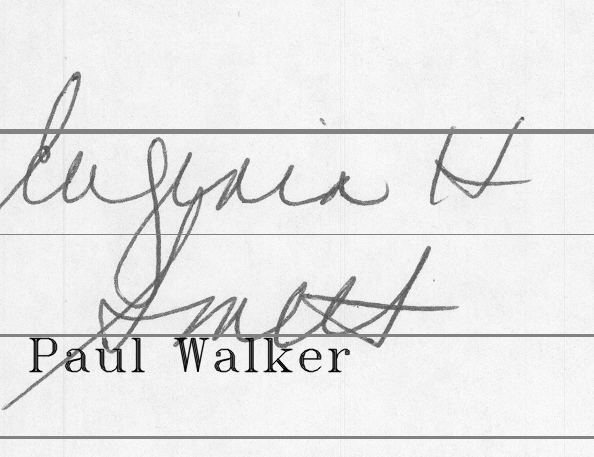 Eugenia H
Smett
Paul Walker